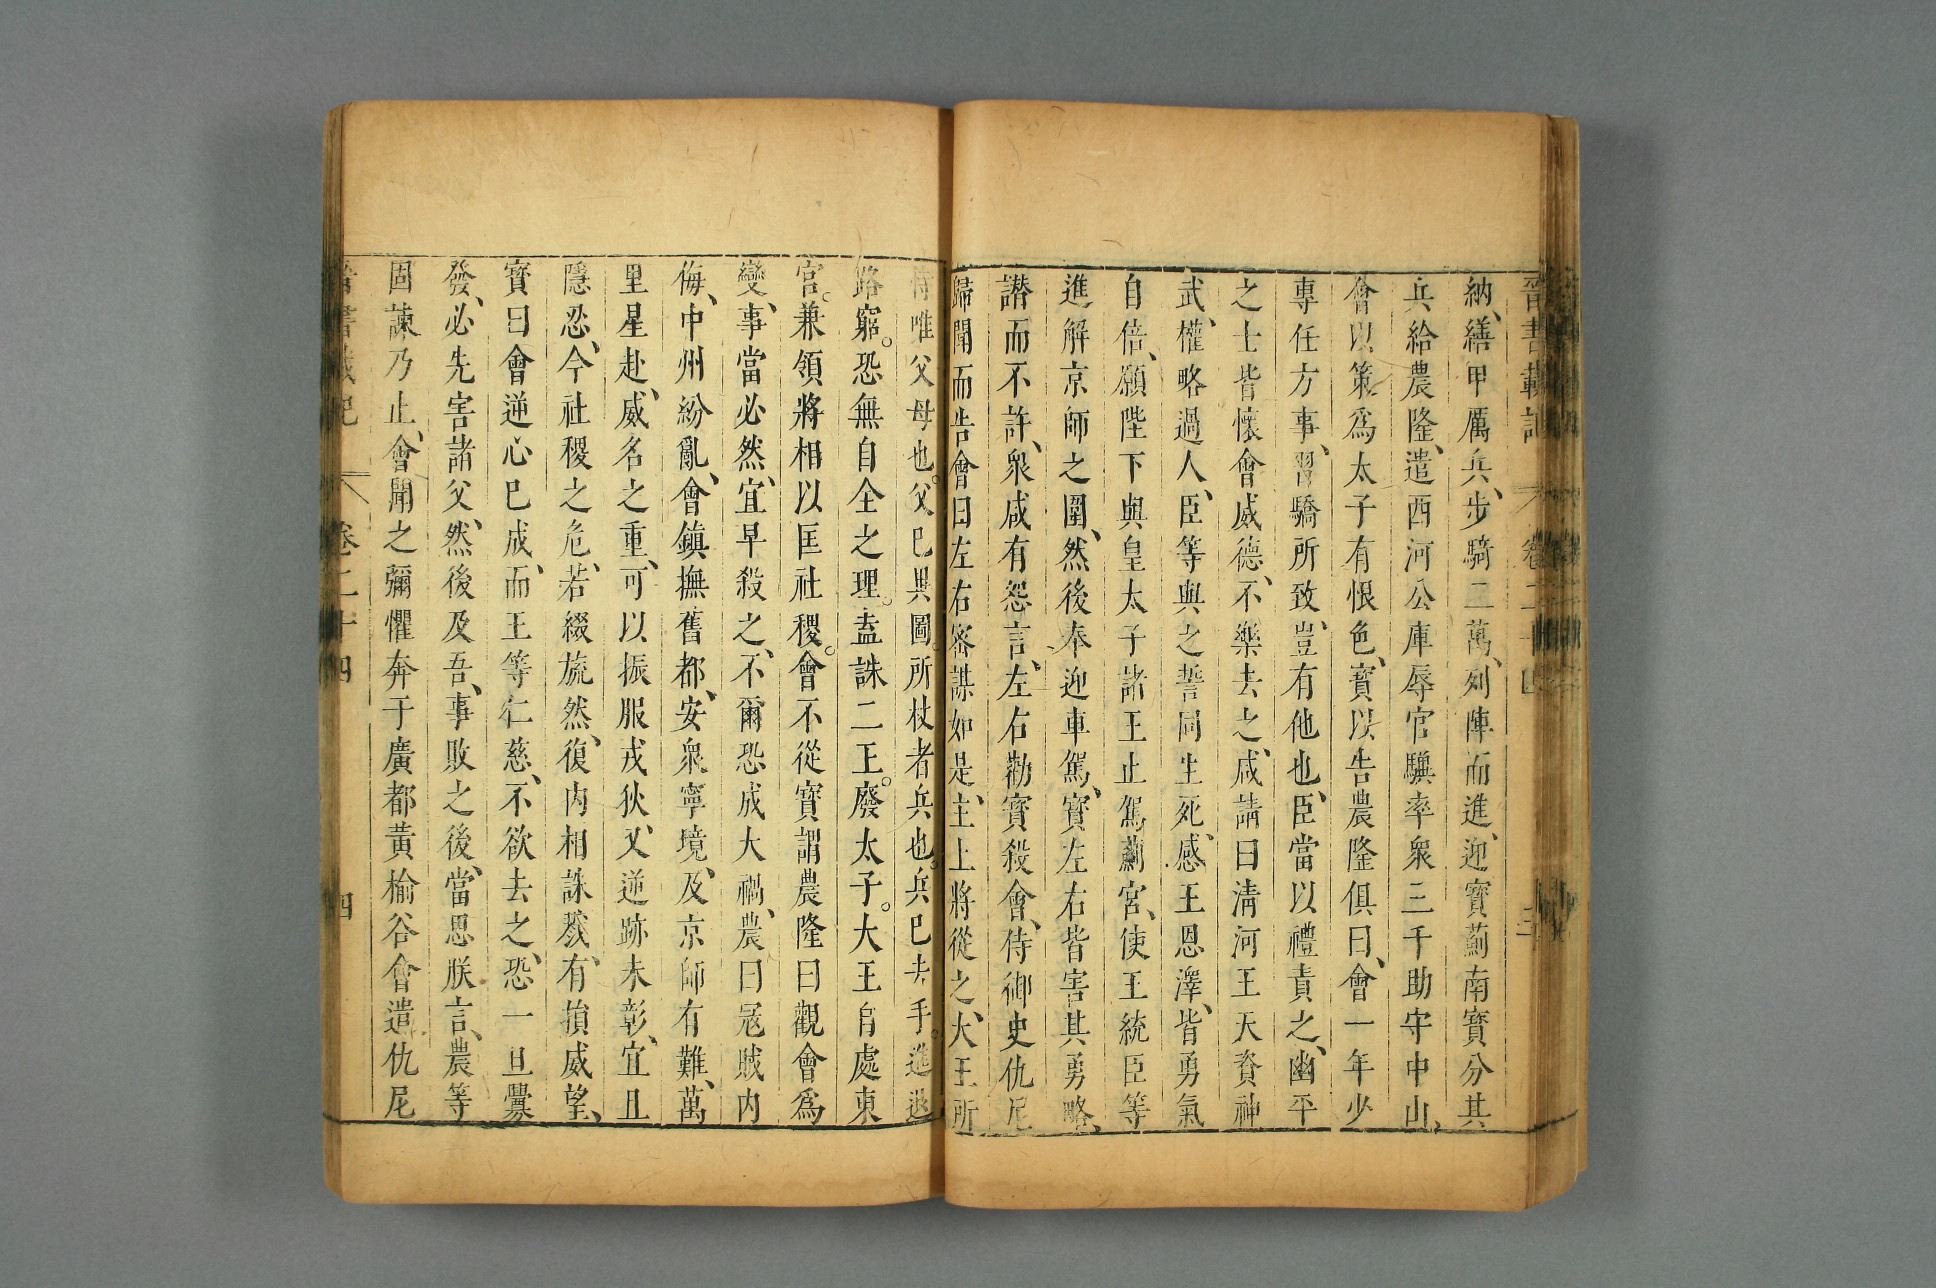 晉書載記 卷二十四 三
納、繕甲厲兵、步騎二萬、列陣而進、迎寶薊南寶分其
兵給農隆、遣西河公庫辱官驥率衆三千助守中山、
會以策爲太子有恨色、寶以告農隆俱曰、會一年少
專任方事、習驕所致、豈有他也、臣當以禮責之、幽平
之士皆懷會威德、不樂去之、咸請曰淸河王天資神
武、權略過人、臣等與之誓同生死、感王恩澤、皆勇氣
自倍、願陛下與皇太子諸王止駕薊宮、使王統臣等
進解京師之圍、然後奉迎車駕、寶左右皆害其勇略、
譖而不許、衆咸有怨言、左右勸寶殺會、侍御史仇尼
歸聞而告會曰左右密謀如是、主上將從之、大王所
恃唯父母也。父已異圖。所杖者兵也。兵已去手。進退
路窮。恐無自全之理。盍誅二王。廢太子。大王自處東
宮。兼領將相以匡社稷。會不從寶謂農隆曰觀會爲
變、事當必然、宜早殺之、不爾恐成大禍、農曰寇賊內
侮、中州紛亂、會鎮撫舊都、安衆寧境、及京師有難、萬
里星赴、威名之重、可以振服戎狄又逆跡未彰、宜且
隱忍、今社稷之危、若綴旒然、復內相誅戮、有損威望、
寶曰會逆心已成、而王等仁慈、不欲去之、恐一旦釁
發、必先害諸父、然後及吾、事敗之後、當思朕言、農等
固諫乃止、會聞之彌懼奔于廣都黃榆谷會遣仇尼
晉書載記 卷二十四 四